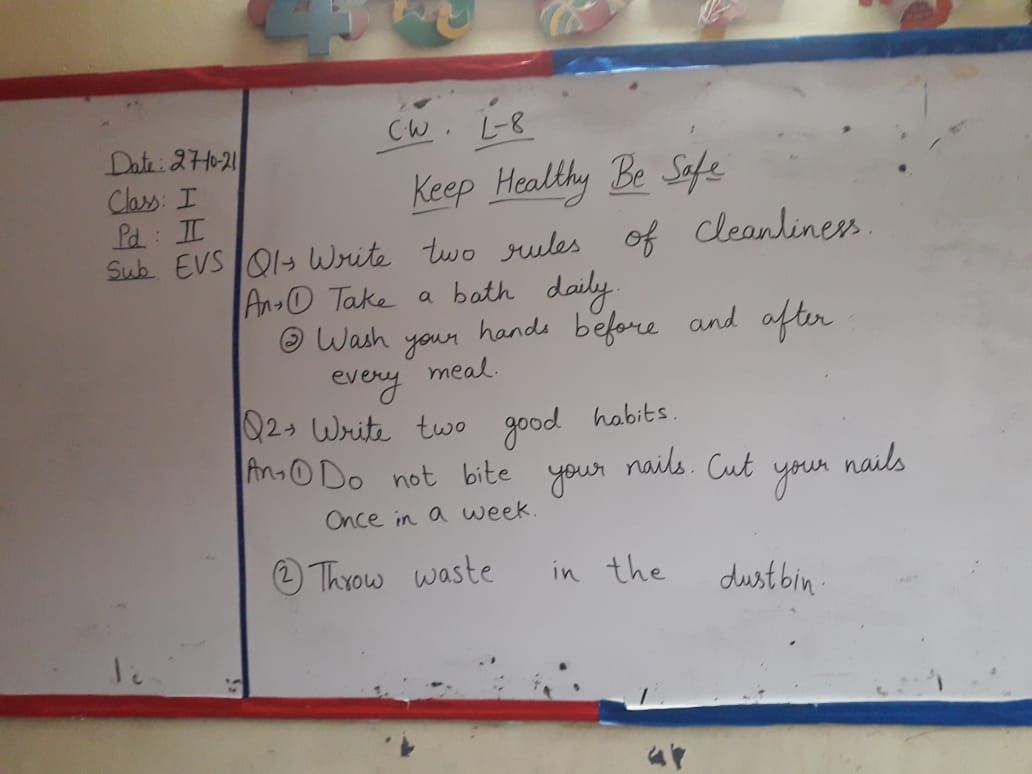 Date: 27-10-21
Class: I
Pd : II
Sub EVS
C.W. L-8
Keep Healthy Be Safe
Q1→ Write two rules of cleanliness.
An→① Take a bath daily.
② Wash your hands before and after
every meal.
Q2→ Write two good habits.
An→① Do not bite your nails. Cut your nails
Once in a week.
② Throw waste in the dustbin.